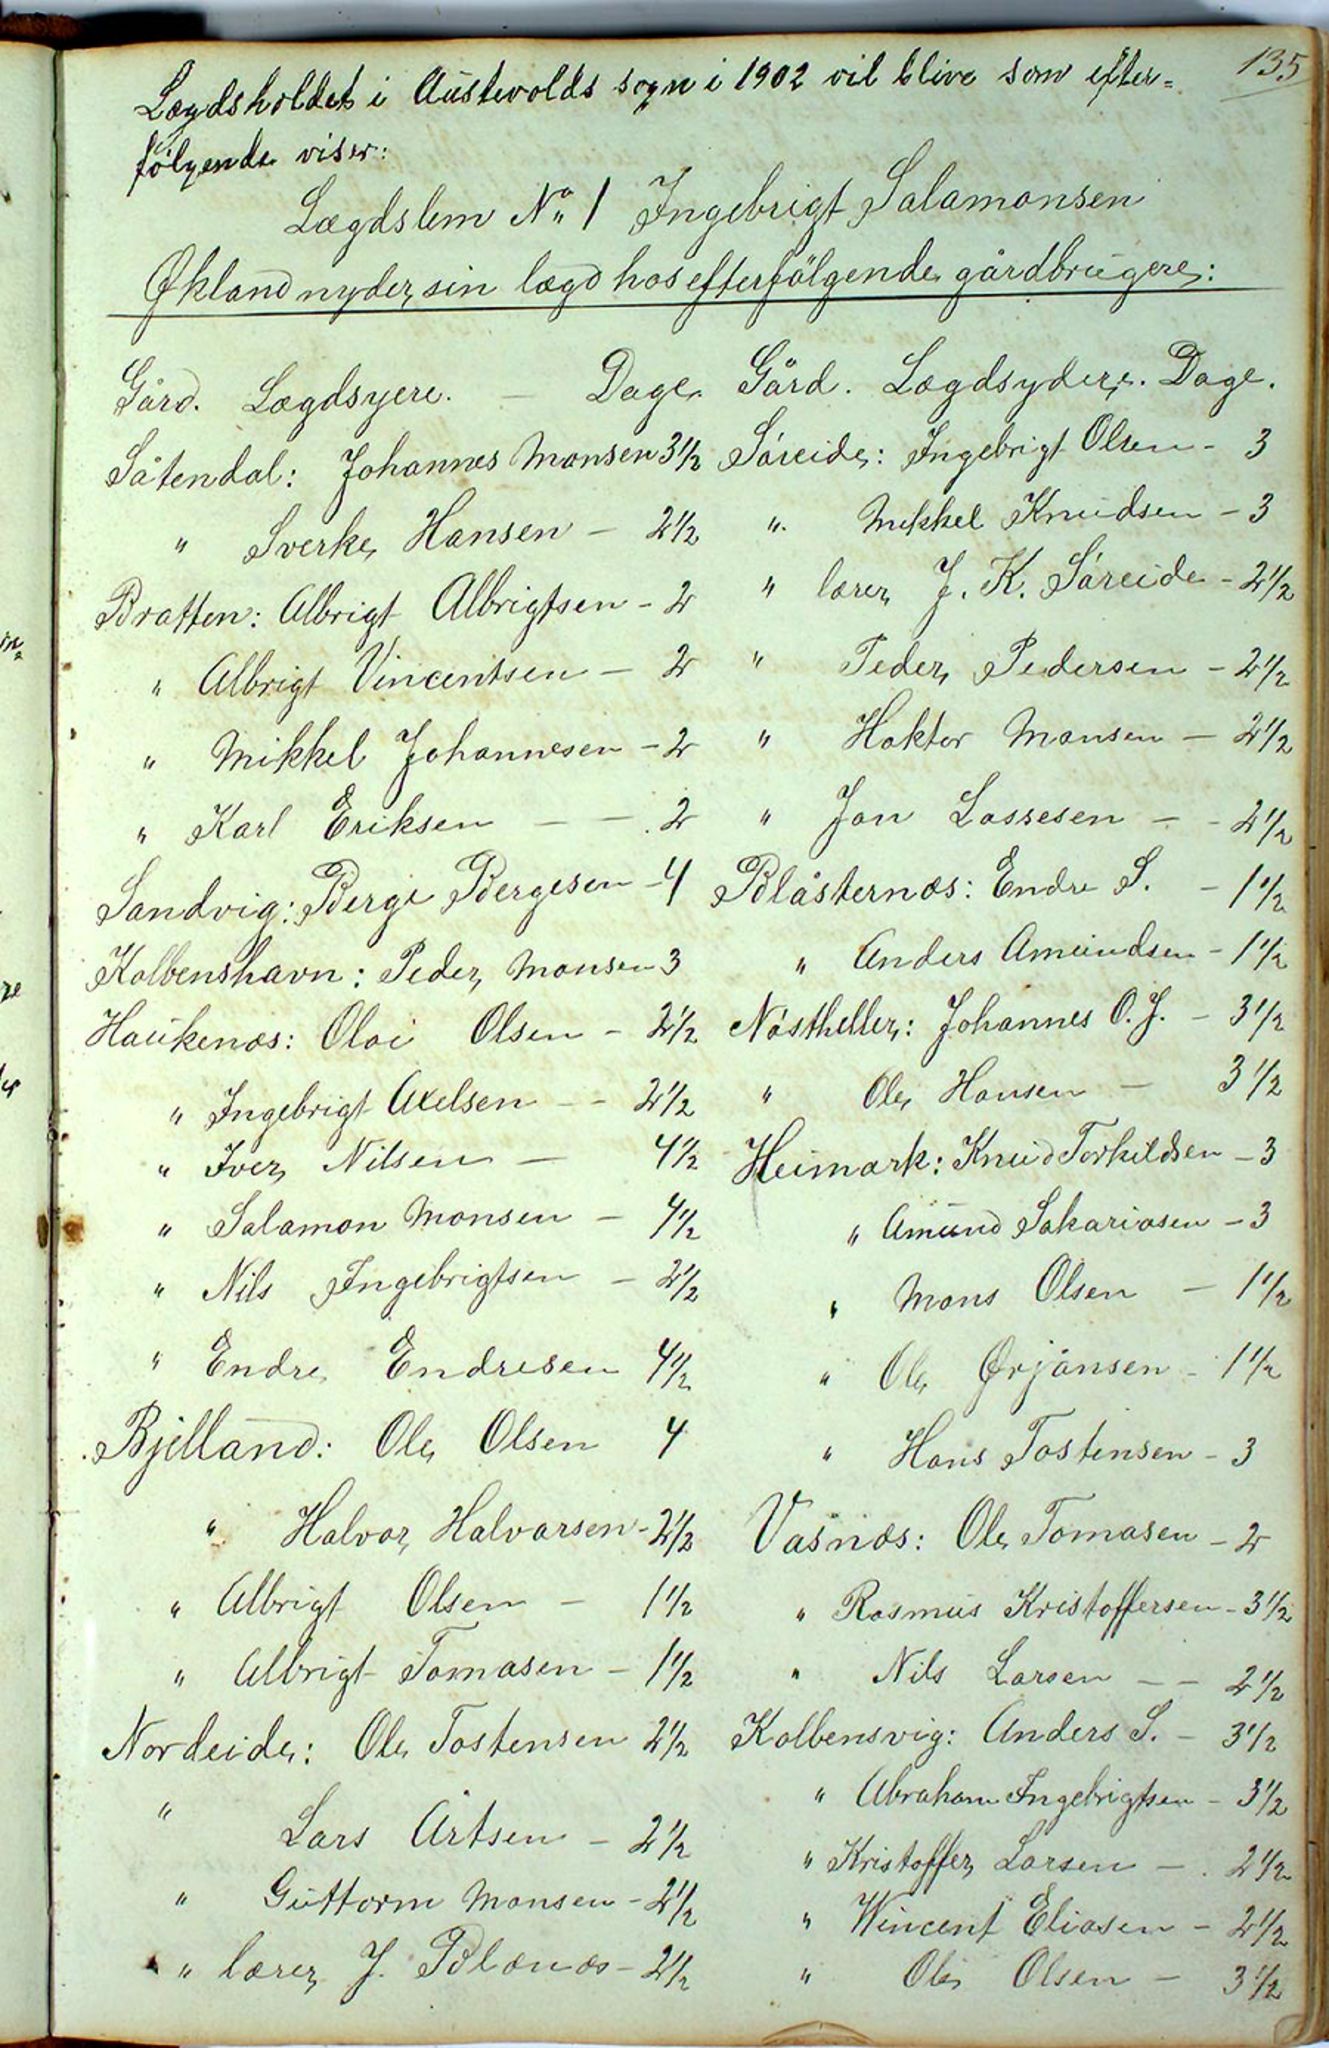 135
Lægdsholdet i Austevolds sogn i 1902 vil blive som efter=
følgende viser:
Lægdslem No 1 Ingebrigt Salamonsen
Økland nyder sin lægd hos efterfölgende gårdbrugere:
Gård. Lægdsyere. — Dage.
Såtendal: Johannes Monsen 3 1/2
" Sverke Hansen — 2 1/2
Bratten: Albrigt Albrigtsen - 2
" Albrigt Vincentsen — 2
" Mikkel Johannesen - 2
" Karl Eriksen — — 2
Sandvig: Berge Bergesen - 4
Kolbenshavn: Peder Monsen 3
Haukenæs: Olai Olsen - 2 1/2
" Ingebrigt Axelsen — - 2 1/2
" Iver Nilsen — 4 1/2
" Salamon Monsen — 4 1/2
" Nils Ingebrigtsen — 2 1/2
" Endre Endresen 4 1/2
Bjelland: Ole Olsen 4
" Halvor Halvorsen - 2 1/2
" Albrigt Olsen — 1 1/2
" Albrigt Tomasen — 1 1/2
Nordeide: Ole Tostensen 2 1/2
" Lars Artsen — 2 1/2
" Guttorm Monsen - 2 1/2
" lærer J. Blænæs - 2 1/2
Gård. Lægdsydere. Dage.
Söreide: Ingebrigt Olsen - 3
" Mikkel Knudsen - 3
" lærer J. K. Söreide - 2 1/2
" Peder Pedersen - 2 1/2
" Haktor Monsen — 2 1/2
" Jon Lassesen — - 2 1/2
Blåsternæs: Endre S. - 1 1/2
" Anders Amundsen - 1 1/2
Nöstheller: Johannes O. J. - 3 1/2
" Ole Hansen — 3 1/2
Heimark: Knud Torkildsen - 3
" Amund Sakariasen - 3
" Mons Olsen — 1 1/2
" Ole Ørjansen - 1 1/2
" Hans Tostensen - 3
Våsnæs: Ole Tomasen - 2
" Rasmus Kristoffersen - 3 1/2
" Nils Larsen — — 2 1/2
Kolbensvig: Anders S. - 3 1/2
" Abraham Ingebrigtsen - 3 1/2
" Kristoffer Larsen — 2 1/2
" Wincent Eliasen - 2 1/2
" Ole Olsen — 3 1/2